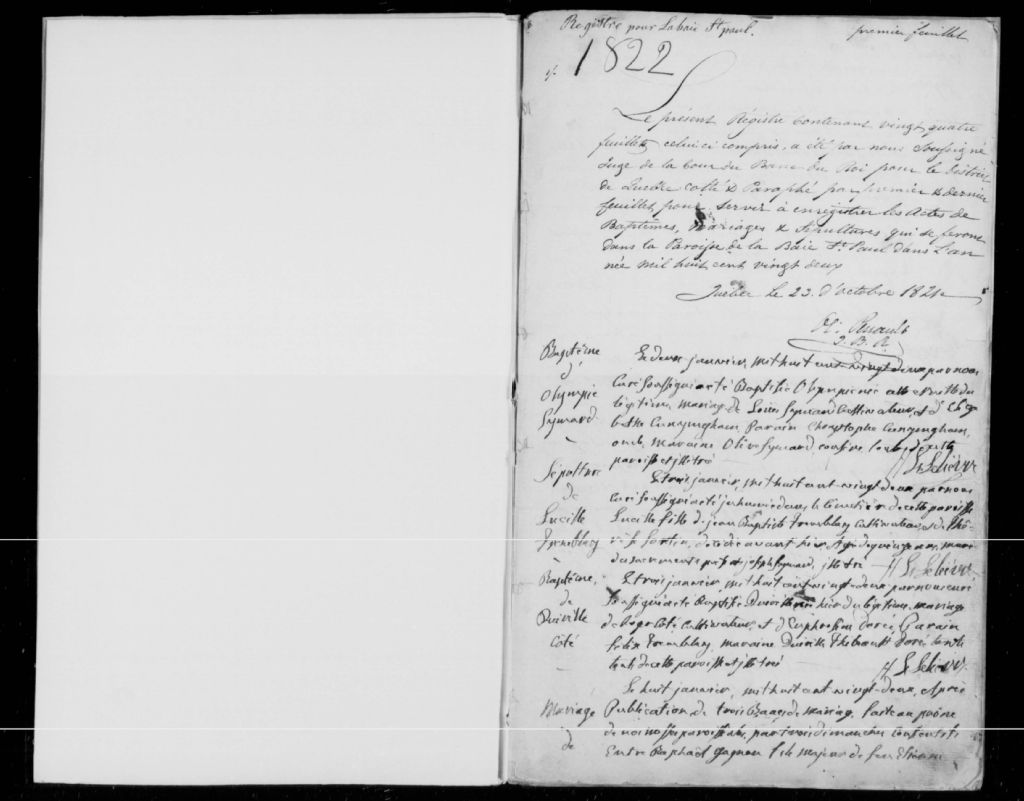 Registre pour Labaie St paul.
premier feuillet
1822
Le présent Régistre Contenant vingt quatre
feuillets celuici compris, a été par nous Soussigné
Juge de la Cour du Banc du Roi pour le District
de Quebec cotté & Paraphé par premier & dernier
feuillet pour servir à enrégistrer les Actes de
Baptêmes, Mariages & Sépultures qui se feront
dans la Paroisse de la Baie St. Paul dans L'an
née Mil huit cent vingt deux
Québec Le 23. d'Octobre 1821
J. B. R.
Baptême
d'
Olympie
Symard
Le deux janvier, mil huit cent vingt deux par nous
Curé Soussigné a été Baptisée Olympie née
légitime mariage de Louis Symard Cultivateur, et d'
Cunyngham, Parain Chrystophe Cunyngham,
oncle, Maraine Olive Symard
paroisse
Lelièvre
Sépulture
de
Lucille
Tremblay
Le trois janvier, mil huit cent vingt deux par nous
Curé Soussigné a été inhumée dans le Cimetière de cette paroisse
Lucille fille de jean Baptiste Tremblay Cultivateur, et de
Fortin, décédée avant hier Agée de quinze ans, munie
des sacrements joseph Symard,
Lelièvre
Baptême
de
Côté
Le trois janvier, mil huit cent vingt deux par nous Curé
Soussigné a été Baptisée née hier du légitime mariage
de Côté Cultivateur, et d'Euphrosine Doré, Parain
Felix Tremblay, maraine Thibeault Doré
de cette paroisse
Lelièvre
Mariage
de
Le huit janvier, mil huit cent vingt deux, Après
Publication de trois Bans de mariage, faite au prône
de nos messes paroissiales, par trois dimanches consécutifs
Entre Raphaël Gagnon fils majeur de feu Etienne